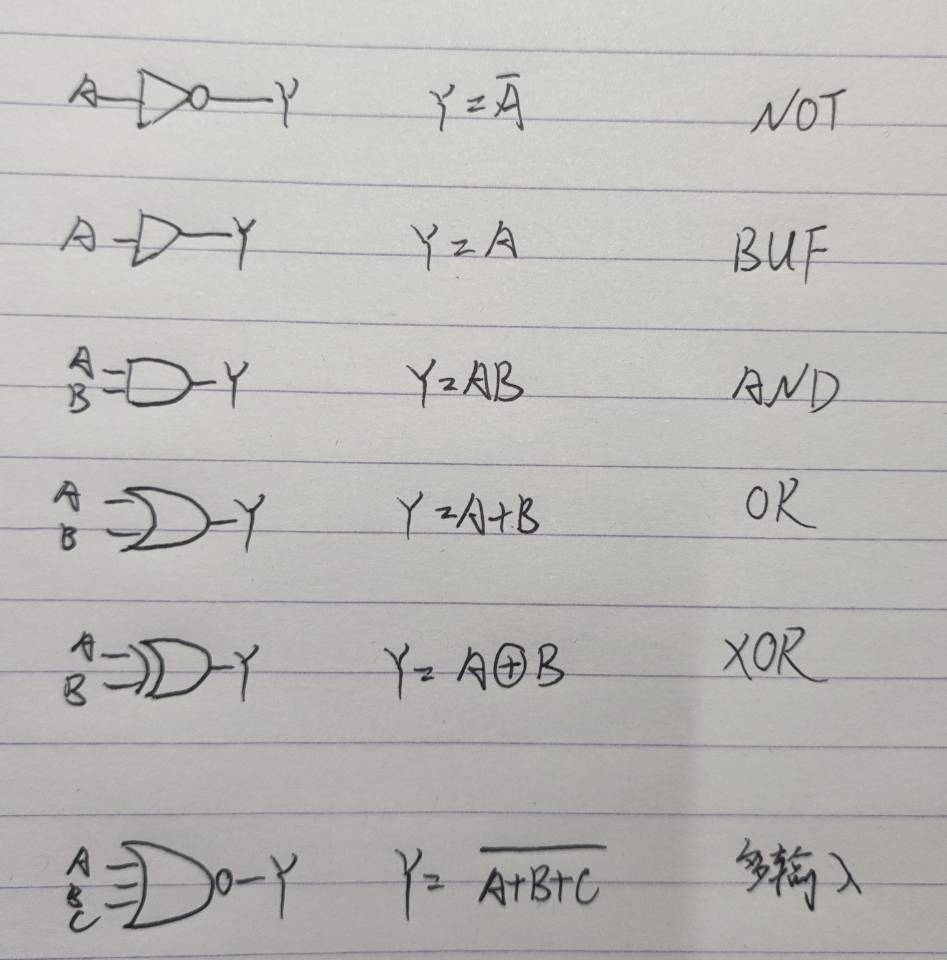 A Y Y = A̅ NOT
A Y Y = A BUF
A B Y Y = AB AND
A B Y Y = A+B OR
A B Y Y = A⊕B XOR
A B C Y Y = \overline{A+B+C} 多输入